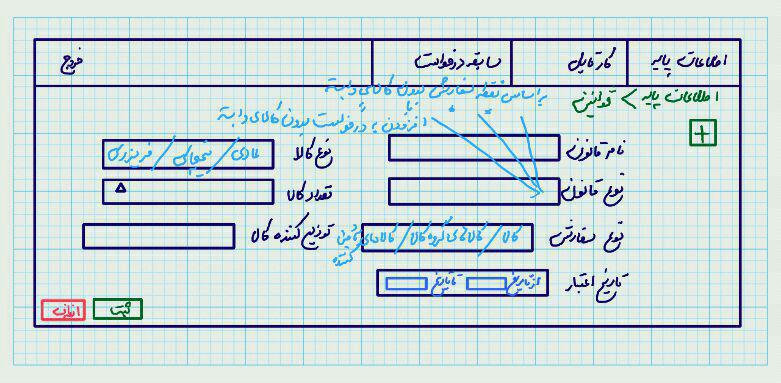 اطلاعات پایه
کارتابل
سابقه درخواست
خروج
اطلاعات پایه > قوانین
بر اساس نقطه سفارش بدون کالای وابسته
افزودن به درخواست بدون کالای وابسته
+
نام قانون
نوع کالا
عادی / یخچالی / فریزری
نوع قانون
تعداد کالا
نوع سفارش
کالا / کالاهای گروه کالا / کالاهای تامین کننده
توزیع کننده کالا
تاریخ اعتبار
از تاریخ
تا تاریخ
ثبت